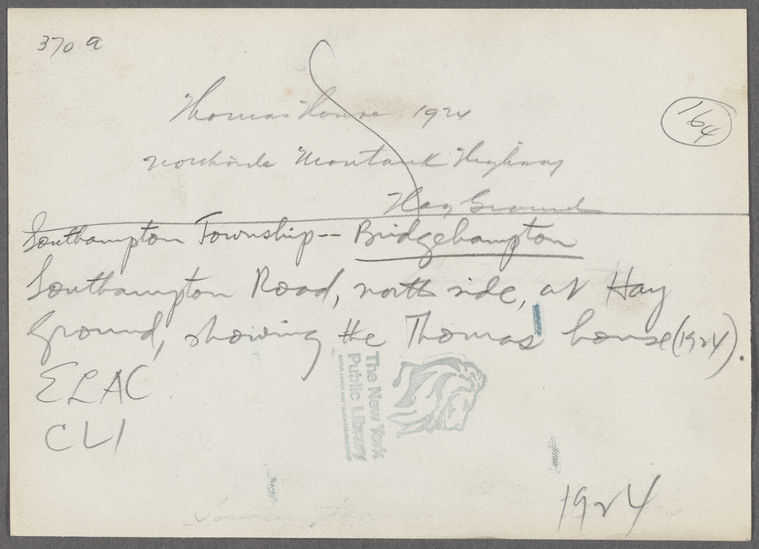 370 a
Thomas House 1924
164
north side Montauk Highway
Hay Ground
Southampton Township-- Bridgehampton
Southampton Road, north side, at Hay
Ground, showing the Thomas house (1924).
ELAC
CLI
The New York
Public Library
1924